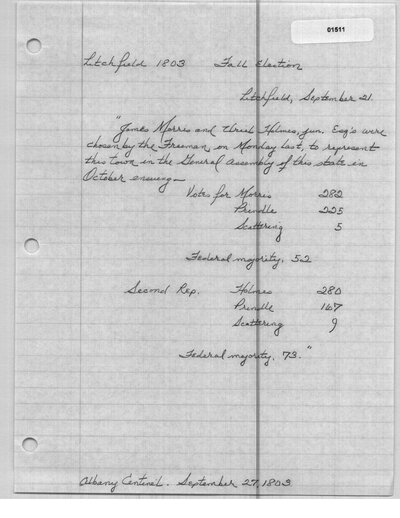 01511
Litchfield 1803 Fall Election
Litchfield, September 21.
"James Morris and Uriel Holmes, jun. Esq's were
chosen by the Freeman on Monday last, to represent
this town in the General Assembly of this state in
October ensuing—
Votes for Morris 282
Prindle 225
Scattering 5
Federal majority, 52
Second Rep. Holmes 280
Prindle 167
Scattering 9
Federal majority, 73."
Albany Centinel. September 27, 1803